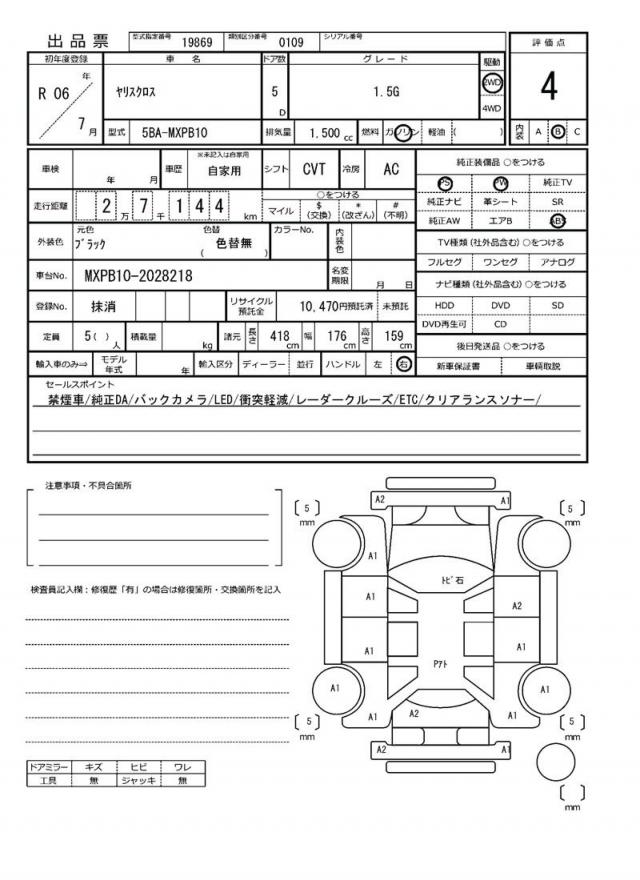 出品票 型式指定番号 19869 類別区分番号 0109 シリアル番号
初年度登録 車名 ドア数 グレード 駆動 評価点
R 06 年 7 月 ヤリスクロス 5 D 1.5G 2WD 4WD 4
型式 5BA-MXPB10 排気量 1.500 cc 燃料 ガソリン 軽油 ( ) 内装 A B C
車検 年 月 車歴 ※未記入は自家用 自家用 シフト CVT 冷房 AC
走行距離 2 万 7 千 1 4 4 km ○をつける マイル $ (交換) * (改ざん) # (不明)
外装色 元色 ブラック 色替 ( 色替無 ) カラーNo. 内装色
車台No. MXPB10-2028218 名変期限 月 日
登録No. 抹消 リサイクル預託金 10,470円預託済 未預託
定員 5( ) 人 積載量 kg 諸元 長さ 418 cm 幅 176 cm 高さ 159 cm
輸入車のみ⇒ モデル年式 年 輸入区分 ディーラー 並行 ハンドル 左 右
純正装備品 ○をつける
PS PW 純正TV
純正ナビ 革シート SR
純正AW エアB ABS
TV種類 (社外品含む) ○をつける
フルセグ ワンセグ アナログ
ナビ種類 (社外品含む) ○をつける
HDD DVD SD
DVD再生可 CD
後日発送品 ○をつける
新車保証書 車輌取説
セールスポイント
禁煙車/純正DA/バックカメラ/LED/衝突軽減/レーダークルーズ/ETC/クリアランスソナー/
注意事項・不具合箇所
検査員記入欄：修復歴「有」の場合は修復箇所・交換箇所を記入
ドアミラー キズ ヒビ ワレ
工具 無 ジャッキ 無
A2 A1
5 mm 5 mm
A1
トビ石
A1 A2
A1 A1
Pアト
A1 A1
A1 A2 A1
5 mm 5 mm
A2 A1
mm